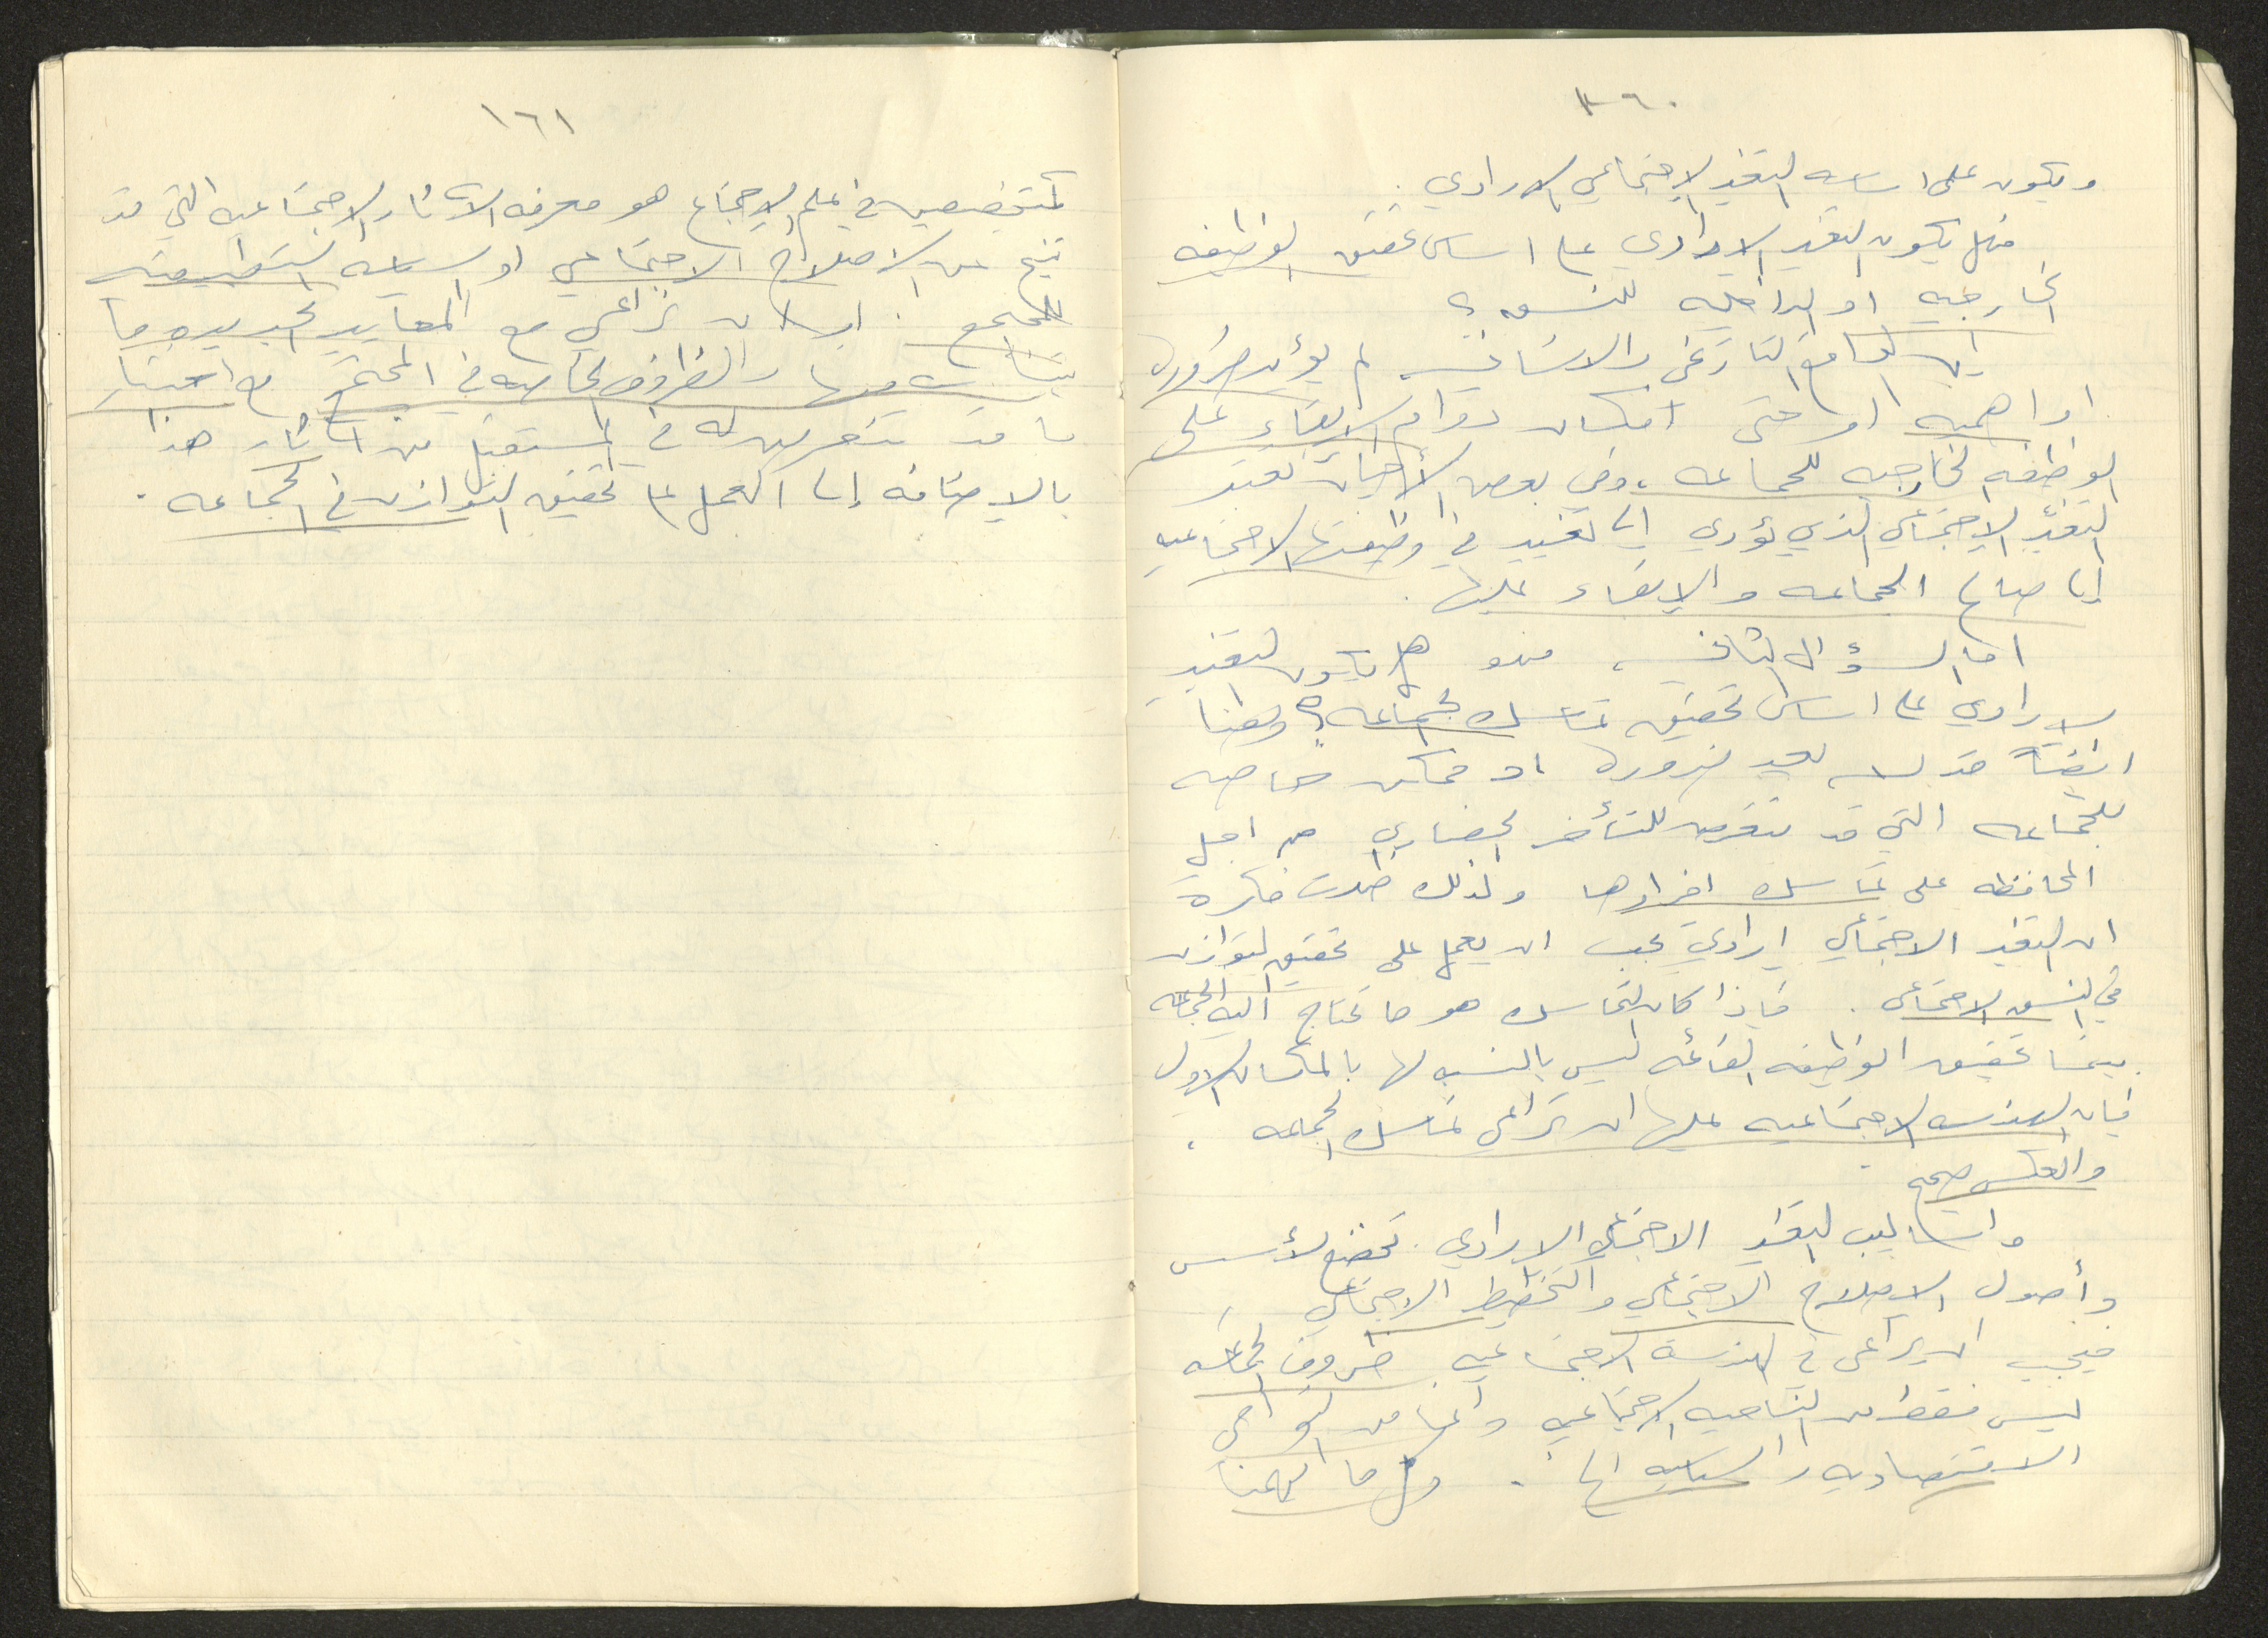 ١٦٠
ويكون على اساسه التغير الاجتماعي الارادي .
فهل يكون التغير الارادي على اساس تحقيق الوظيفه
الخارجيه او الداخليه للنسق ؟
ان الواقع التاريخي والانساني لم يؤيد ضرورة
او اهميه او حتى امكان دوام الابقاء على
الوظيفه الخارجيه للجماعه ، وفي بعض الأحيان
التغير الاجتماعي الذي يؤدي الى تغيير في وظيفتها الاجتماعيه
الى صالح الجماعه والابقاء عليها .
اما السؤال الثاني ، فهو هل يكون التغير
الارادي على اساس تحقيق تماسك الجماعه ؟ وهنا
ايضاً قد ليس ضروره او ممكن خاصه
للجماعه التي قد تتعرض للتأخر الحضاري من اجل
المحافظه على تماسك افرادها ولذلك ظهرت فكرة
ان التغير الاجتماعي ارادي يجب ان يعمل على تحقيق التوازن
في النسق الاجتماعي . فاذا كان التماسك هو ما تحتاج اليه الجماعه
بينما تحقيق الوظيفه القائمه ليس بالنسبه لها بالمكان الاول
فان الهندسه الاجتماعيه عليها ان تراعي تماسك الجماعه ،
والعكس صحيح
واساليب التغير الاجتماعي الارادي تخضع لأسس
وأصول الاصلاح الاجتماعي والتخطيط الاجتماعي
فيجب ان يراعى في الهندسة الاجتماعيه ظروف الجماعه
ليس فقط من الناحيه الاجتماعيه وانما من النواحي
الاقتصاديه والسياسيه الخ . وكل ما يهمنا
١٦١
كمتخصصين في علم الاجتماع هو معرفه الآثار الاجتماعيه التي قد
تنتج عن الاصلاح الاجتماعي او السياسه التخطيطيه
للمجتمع . اي ان نراعي مع المعايير الجديده وما
يتناسب منها والظروف الخاصه في المجتمع مع اعتبار
ما قد تتعرض له في المستقبل من آثار هذا
بالاضافه الى العمل على تحقيق التوازن في الجماعه .